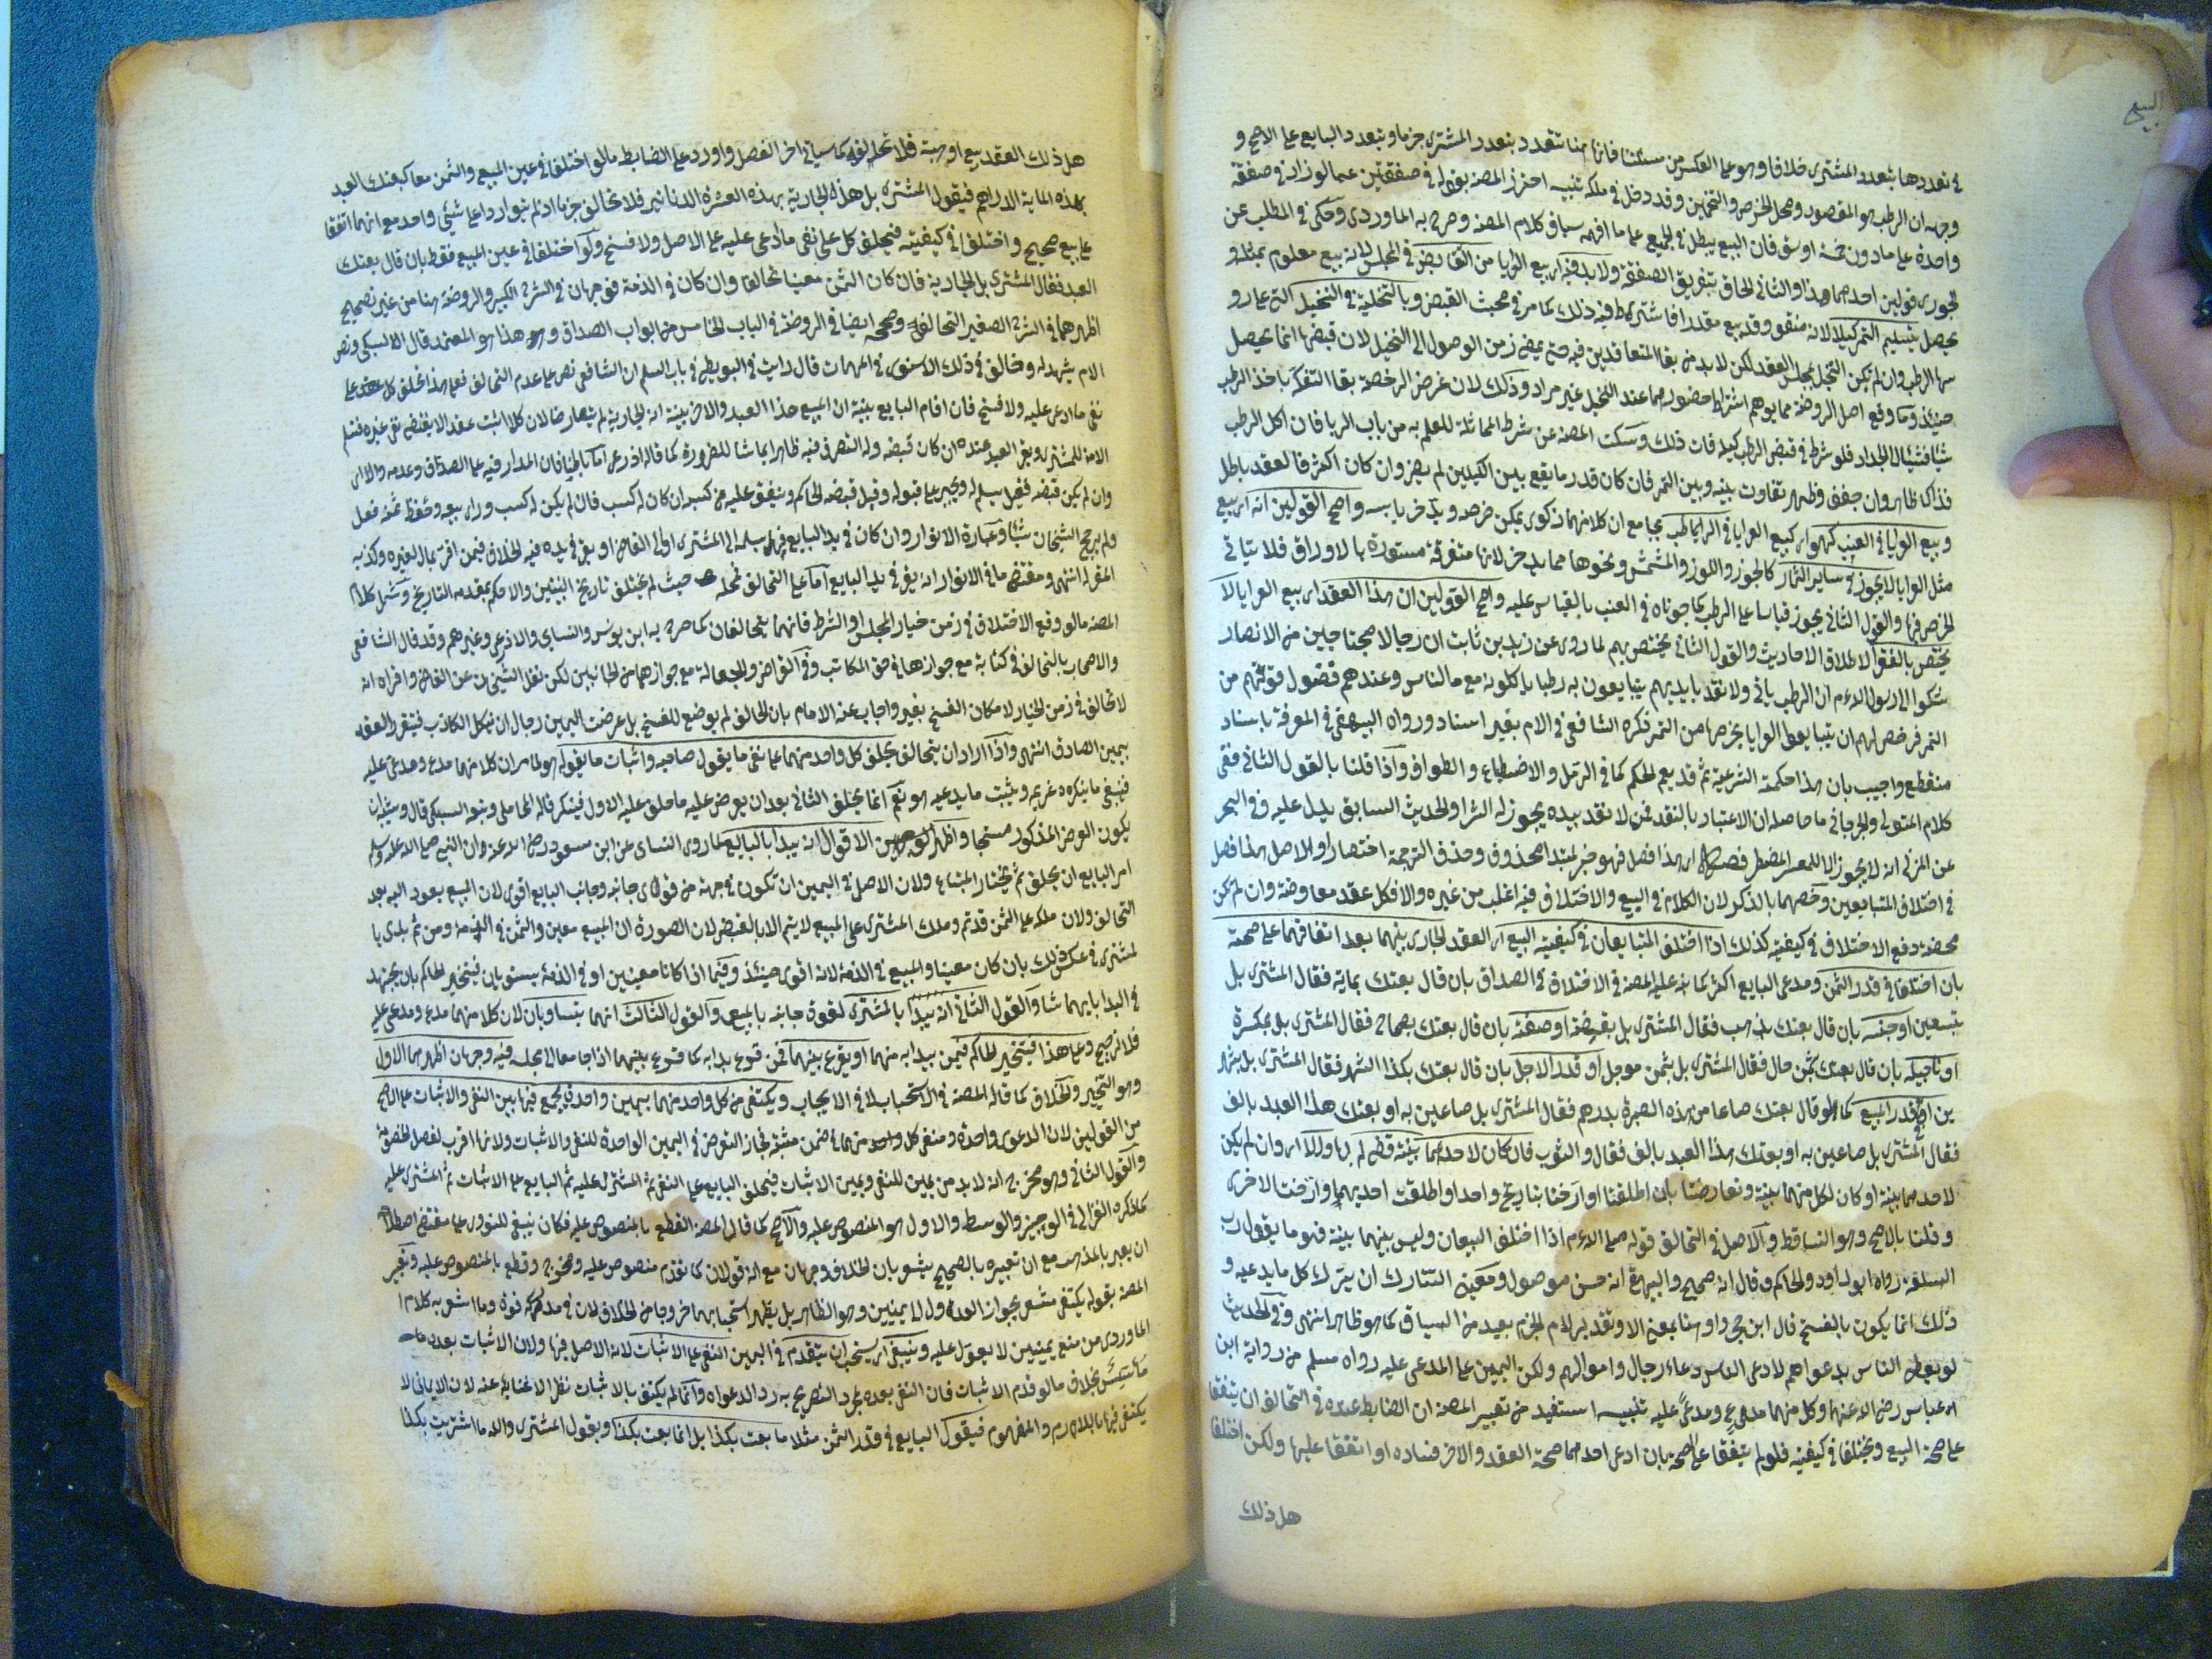 البيع
في تعددها بتعدد المشترى خلافا وهو على العكس من مسئلتنا فانها هنا تتعدد بتعدد المشترى جزما وبتعدد البايع على الاصح و
وجهه ان الرطب هو المقصود ومحل الخرص والتخمين وقد دخل في ملكه تنبيه احترز المصنف بقوله في صفقتين عما لو زاد في صفقة
واحدة على ما دون خمسة اوسق فان البيع يبطل في الجميع على ما افهمه سياق كلام المصنف وصرح به الماوردى وحكى في المطلب عن
الجورى قولين احدهما هذا والثاني الحاق بتفريق الصفقة ولا بد فيه اى بيع العرايا من التقابض في المجلس لانه بيع مطعوم بمثله و
يحصل بتسليم التمر كيلا لانه منقول وقد بيع مقدرا فاشترط فيه ذلك كما مر في مبحث القبض وبالتخلية في النخيل التي عليها
الرطب وان لم يكن النخيل بمجلس العقد لكن لا بد من بقا المتعاقدين فيه حتى يمضى زمن الوصول الى النخيل لان قبضها انما يحصل
حينئذ وما وقع في اصل الروضة مما يوهم اشتراط حضورهما عند النخيل غير مراد وذلك لان غرض الرخصة بقا التفكه باخذ الرطب
شيًا فشيًا الى الجداد فلو شرط في قبض الرطب كيله فات ذلك وسكت المصنف عن شرط المماثلة للعلم به من باب الربا فان اكل الرطب
فذاك ظاهر وان جفف وظهر تفاوت بينه وبين التمر فان كان قدر ما يقع بين الكيلين لم يضر وان كان اكثر فالعقد باطل
وبيع العرايا في العنب كهو اى كبيع العرايا في الرطب بجامع ان كلا منهما زكوى يمكن خرصه ويدخر يابسه واصح القولين انه اى بيع
مثل العرايا لا يجوز في ساير الثمار كالجوز واللوز والمشمش ونحوها مما يدخر لانها متفرقة مستورة بالاوراق فلا يتاتى
الخرص فيها والقول الثاني يجوز قياسا على الرطب كما جوزناه في العنب بالقياس عليه واصح القولين ان هذا العقد اى بيع العرايا لا
يختص بالفقرا لاطلاق الاحاديث والقول الثاني يختص بهم لما روى عن زيد بن ثابت ان رجالا محتاجين من الانصار
شكوا الى رسول الله صلعم ان الرطب ياتي ولا نقد بايديهم يتبايعون به رطبا ياكلونه مع الناس وعندهم فضول قوتهم من
التمر فرخص لهم ان يتبايعوا العرايا بخرصها من التمر ذكره الشافعي في الام بغير اسناد ورواه البيهقي في المعرفة باسناد
منقطع واجيب بان هذا حكمة الشرعية ثم قد يعم الحكم كما في الرمل والاضطباع في الطواف واذا قلنا بالقول الثاني ففي
كلام المتولي والجرجاني ما حاصله ان الاعتبار بالنقد فمن لا نقد بيده يجوز له الشرا والحديث السابق يدل عليه وفي البحر
عن المزني انه لا يجوز الا للمعسر المضطر فصل اى هذا فصل فهو خبر لمبتدا محذوف وحذف الترجمة اختصارا والاصل هذا فصل
في اختلاف المتبايعين وخصهما بالذكر لان الكلام في البيع والاختلاف فيه اغلب من غيره والا فكل عقد معاوضة وان لم تكن
محضة وقع الاختلاف في كيفيته كذلك اذا اختلف المتبايعان في كيفية البيع اى العقد الجارى بينهما بعد اتفاقهما على صحته
بان اختلفا في قدر الثمن ومدعى البايع اكثر كما نبه عليه المصنف في الاختلاف في الصداق بان قال بعتك بماية فقال المشترى بل
بتسعين او جنسه بان قال بعتك بذهب فقال المشترى بل بفضة او صفته بان قال بعتك بصحاح فقال المشترى بل بمكسرة
او تاجيله بان قال بعتك بثمن حال فقال المشترى بل بثمن موجل او قدر الاجل بان قال بعتك بكذا الى شهر فقال المشترى بل بشهر
ين او قدر المبيع كما لو قال بعتك صاعا من هذه الصبرة بدرهم فقال المشترى بل صاعين به او بعتك هذا العبد بالف
فقال المشترى بل صاعين به او بعتك هذا العبد بالف فقال والثوب فان كان لاحدهما بينة قضى له بها والا اى وان لم يكن
لاحدهما بينة او كان لكل منهما بينة وتعارضتا بان اطلقتا او ارختا بتاريخ واحد او اطلقت احديهما وارخت الاخرى
وقلنا بالاصح وهو التساقط والاصل في التحالف قوله صلعم اذا اختلف البيعان وليس بينهما بينة فهو ما يقول رب
السلعة رواه ابو داود والحاكم وقال انه صحيح والبيهقي انه حسن موصول ومعنى التتارك ان يترك كل ما يدعيه و
ذلك انما يكون بالفسخ قال ابن حجر واو هنا بمعنى الا وتقدير لام الجزم بعيد من السياق كما هو ظاهر انتهى وفي الحديث
لو يعطى الناس بدعواهم لادعى الناس دماء رجال واموالهم ولكن اليمين على المدعى عليه رواه مسلم من رواية ابن
عباس رضى الله عنهما وكل منهما مدعٍ ومدعًى عليه تنبيه استفيد من تعبير المصنف ان الضابط عنده في التحالف ان يتفقا
على صحة البيع ويختلفا في كيفيته فلو لم يتفقا على صحة بان ادعى احدهما صحة العقد والاخر فساده او اتفقا عليها ولكن اختلفا
هل ذلك
هل ذلك العقد بيع او هبة فلا تحالف كما سياتي اخر الفصل واورد على الضابط ما لو اختلفا في عين المبيع والثمن معا كبعتك العبد
بهذه الماية الدراهم فيقول المشترى بل هذه الجارية بهذه العشرة الدنانير فلا تحالف جزما اذ لم يتواردا على شيئ واحد مع انهما اتفقا
على بيع صحيح واختلفا في كيفيته فيحلف كل على نفى ما ادعى عليه على الاصل ولا فسخ ولو اختلفا في عين المبيع فقط بان قال بعتك
العبد فقال المشترى بل الجارية فان كان الثمن معينا تحالفا وان كان في الذمة فوجهان في الشرح الكبير والروضة هنا من غير تصحيح
اظهرهما في الشرح الصغير التحالف وصححه ايضا في الروضة في الباب الخامس من ابواب الصداق وهو هذا هو المعتمد قال السبكى ونص
الام يشهد له وخالف في ذلك الاسنوى في المهمات قال رايت في البويطى في باب السلم ان الشافعي نص على عدم التحالف فعلى هذا يحلف كل على
نفى ما ادعى عليه ولا فسخ فان اقام البايع بينة ان المبيع هذا العبد والاخر بينة انه الجارية لم يتعارضا لان كلا اثبت عقدا لا يقتضى نفى غيره فتسلم
الامة للمشترى ويقر العبد عنده ان كان قبضه وله التصرف فيه ظاهرا بما شا للضرورة كما قاله الاذرعى
وان لم يكن قبضه فقيل يسلم له ويجبر على قبوله وقيل قبضه الحاكم وينفق عليه من كسبه ان كان له كسب فان لم يكن له كسب وراى بيعه وحفظ ثمنه فعل
ولم يرجح الشيخان شيًا وعبارة الانوار وان كان في يد البايع فهل يسلمه الى المشترى او الى القاضى او يبقى في يده فيه الخلاف فيمن اقر بمال لغيره وكذبه
المقر له انتهى ومقتضى ما في الانوار انه يقر في يد البايع اما على التحالف فمحله حيث لم يختلف تاريخ البينتين والا حكم بمقدمه التاريخ وشمل كلام
المصنف ما لو وقع الاختلاف في زمن خيار المجلس او الشرط فانهما يتحالفان كما صرح به ابن يونس والنساى والاذرعى وغيرهم وقد قال الشافعى
والاصحاب بالتحالف في كتابة مع جوازها في حق المكاتب وفي القراض والجعالة مع جوازهما من الجانبين لكن نقل الشيخان عن القاضى واقراه انه
لا تحالف في زمن الخيار لامكان الفسخ بغيره واجاب عنه الامام بان التحالف لم يوضع للفسخ بل عرضت اليمين رجا ان ينكل الكاذب فيتقرر العقد
بيمين الصادق انتهى واذا ارادا ان يتحالفا يحلف كل واحد منهما على نفى ما يقول صاحبه واثبات ما يقوله هو لما مر ان كلا منهما مدع ومدعى عليه
فينفى ما ينكره غريمه ويثبت ما يدعيه هو نعم انما يحلف الثاني بعد ان يعرض عليه ما حلف عليه الاول فينكر قاله المحاملى وتبعه السبكى قال ويشبه ان
يكون العرض المذكور مستحبا واظهر الاقوال ان يبدا بالبايع لما روى النساى عن ابن مسعود رضى الله عنه ان النبي صلى الله عليه وسلم
امر البايع ان يحلف ثم يختار المبتاع ولان الاصل في اليمين ان تكون في جهة من قوى جانبه وجانب البايع اقوى لان المبيع يعود اليه بعد
التحالف ولان ملكه على الثمن قد تم وملك المشترى على المبيع لا يتم الا بالقبض لان الصورة ان المبيع معين والثمن في الذمة ومن ثم بدى با
لمشترى في عكس ذلك بان كان معينا والمبيع في الذمة لانه اقوى حينئذ وفيما اذا كانا معينين او في الذمة يستويان فيتخير الحاكم بان يجتهد
في البداية بايهما شا والقول الثاني انه يبدا بالمشترى لقوة جانبه بالمبيع والقول الثالث انهما يتساويان لان كلا منهما مدع ومدعى عليه
فلا ترجيح وعلى هذا فيتخير الحاكم فيمن يبدا به منهما او يقرع بينهما فمن قرع بدا به كما قرع بينهما اذا جا معا الى مجلسه فيه وجهان اظهرهما الاول
وهو التخيير والخلاف كما قاله المصنف في الاستحباب لا في الايجاب ويكتفى من كل واحد منهما بيمين واحدة يجمع فيها بين النفى والاثبات على الاصح
من القولين لان الدعوى واحدة ومنفى كل واحد منهما في ضمن مثبته فجاز التعرض في اليمين الواحدة للنفى والاثبات ولانها اقرب لفصل الخصومة
والقول الثاني وهو مخرج انه لا بد من يمين للنفى ويمين للاثبات فيحلف البايع على النفى ثم المشترى عليه ثم البايع على الاثبات ثم المشترى عليه
كما ذكره الغزالي في الوجيز والوسيط والاول هو المنصوص عليه والاصح كما قاله المصنف القطع بالمنصوص عليه فكان ينبغى للنووى على مقتضى اصطلاحه
ان يعبر بالمذهب مع ان تعبيره بالصحيح يشعر بان الخلاف وجهان مع انه قولان كما تقدم منصوص عليه ومخرج وقطع بالمنصوص عليه وتعبير
المصنف بقوله يكتفى مشعر بجواز العدول الى يمينين وهو الظاهر بل يظهر استحبابهما خروجا من الخلاف لان في مدركه قوة وما اشعر به كلام
الماوردى من منع يمينين لا يعول عليه وينبغى اى يستحب ان يتقدم في اليمين النفى على الاثبات لانه الاصل فيها ولان الاثبات بعده
بخلاف ما لو قدم الاثبات فان النفى بعده مجرد التصريح به رد الدعواه وانما لم يكتف بالاثبات نظرا لاغنايه عنه لان الايمان لا
يكتفى فيها باللازم والمفهوم فيقول البايع في قدر الثمن مثلا ما بعت بكذا بل انما بعت بكذا ويقول المشترى والله ما اشتريت بكذا